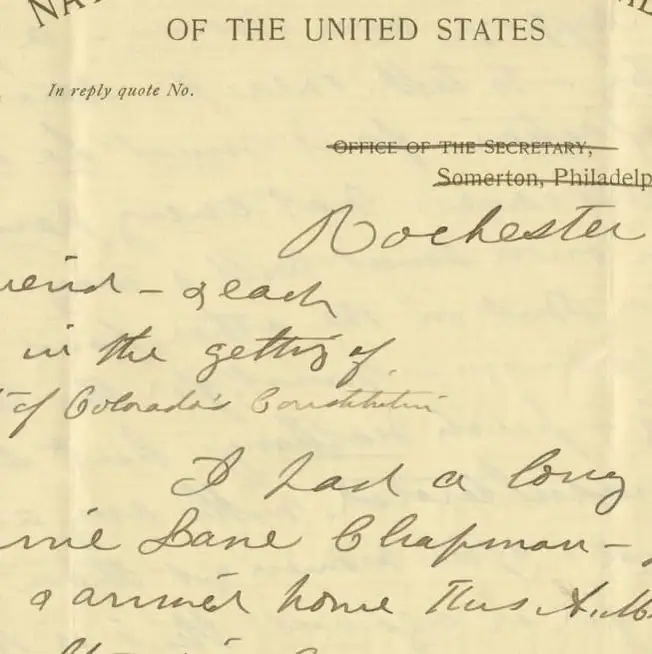 NA
OF THE UNITED STATES
In reply quote No.
OFFICE OF THE SECRETARY,
Somerton, Philadelp
Rochester
riend - & each
in the getting of
of Colorado's Constitution
I had a long
nnie Lane Chapman -
& arrived home this A.M.